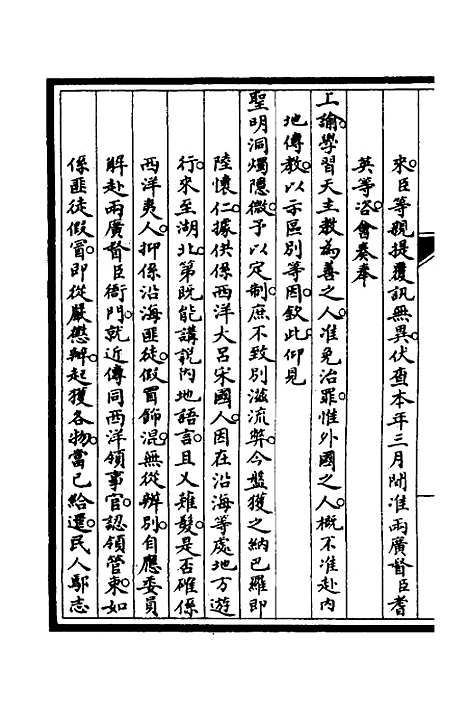 來臣等親提覆訊無異伏查本年三月間准兩廣督臣耆
英等咨會奏奉
上諭學習天主教為善之人准免治罪惟外國之人概不准赴內
地傳教以示區別等因欽此仰見
聖明洞燭隱微予以定制庶不致別滋流弊今盤獲之納巴羅即
陸懷仁據供係西洋大呂宋國人因在沿海等處地方遊
行來至湖北第既能講說內地語言且又薙髮是否確係
西洋夷人抑係沿海匪徒假冒飾混無從辨別自應委員
解赴兩廣督臣衙門就近傳同西洋領事官認領管束如
係匪徒假冒即從嚴懲辦起獲各物當已給還民人鄢志